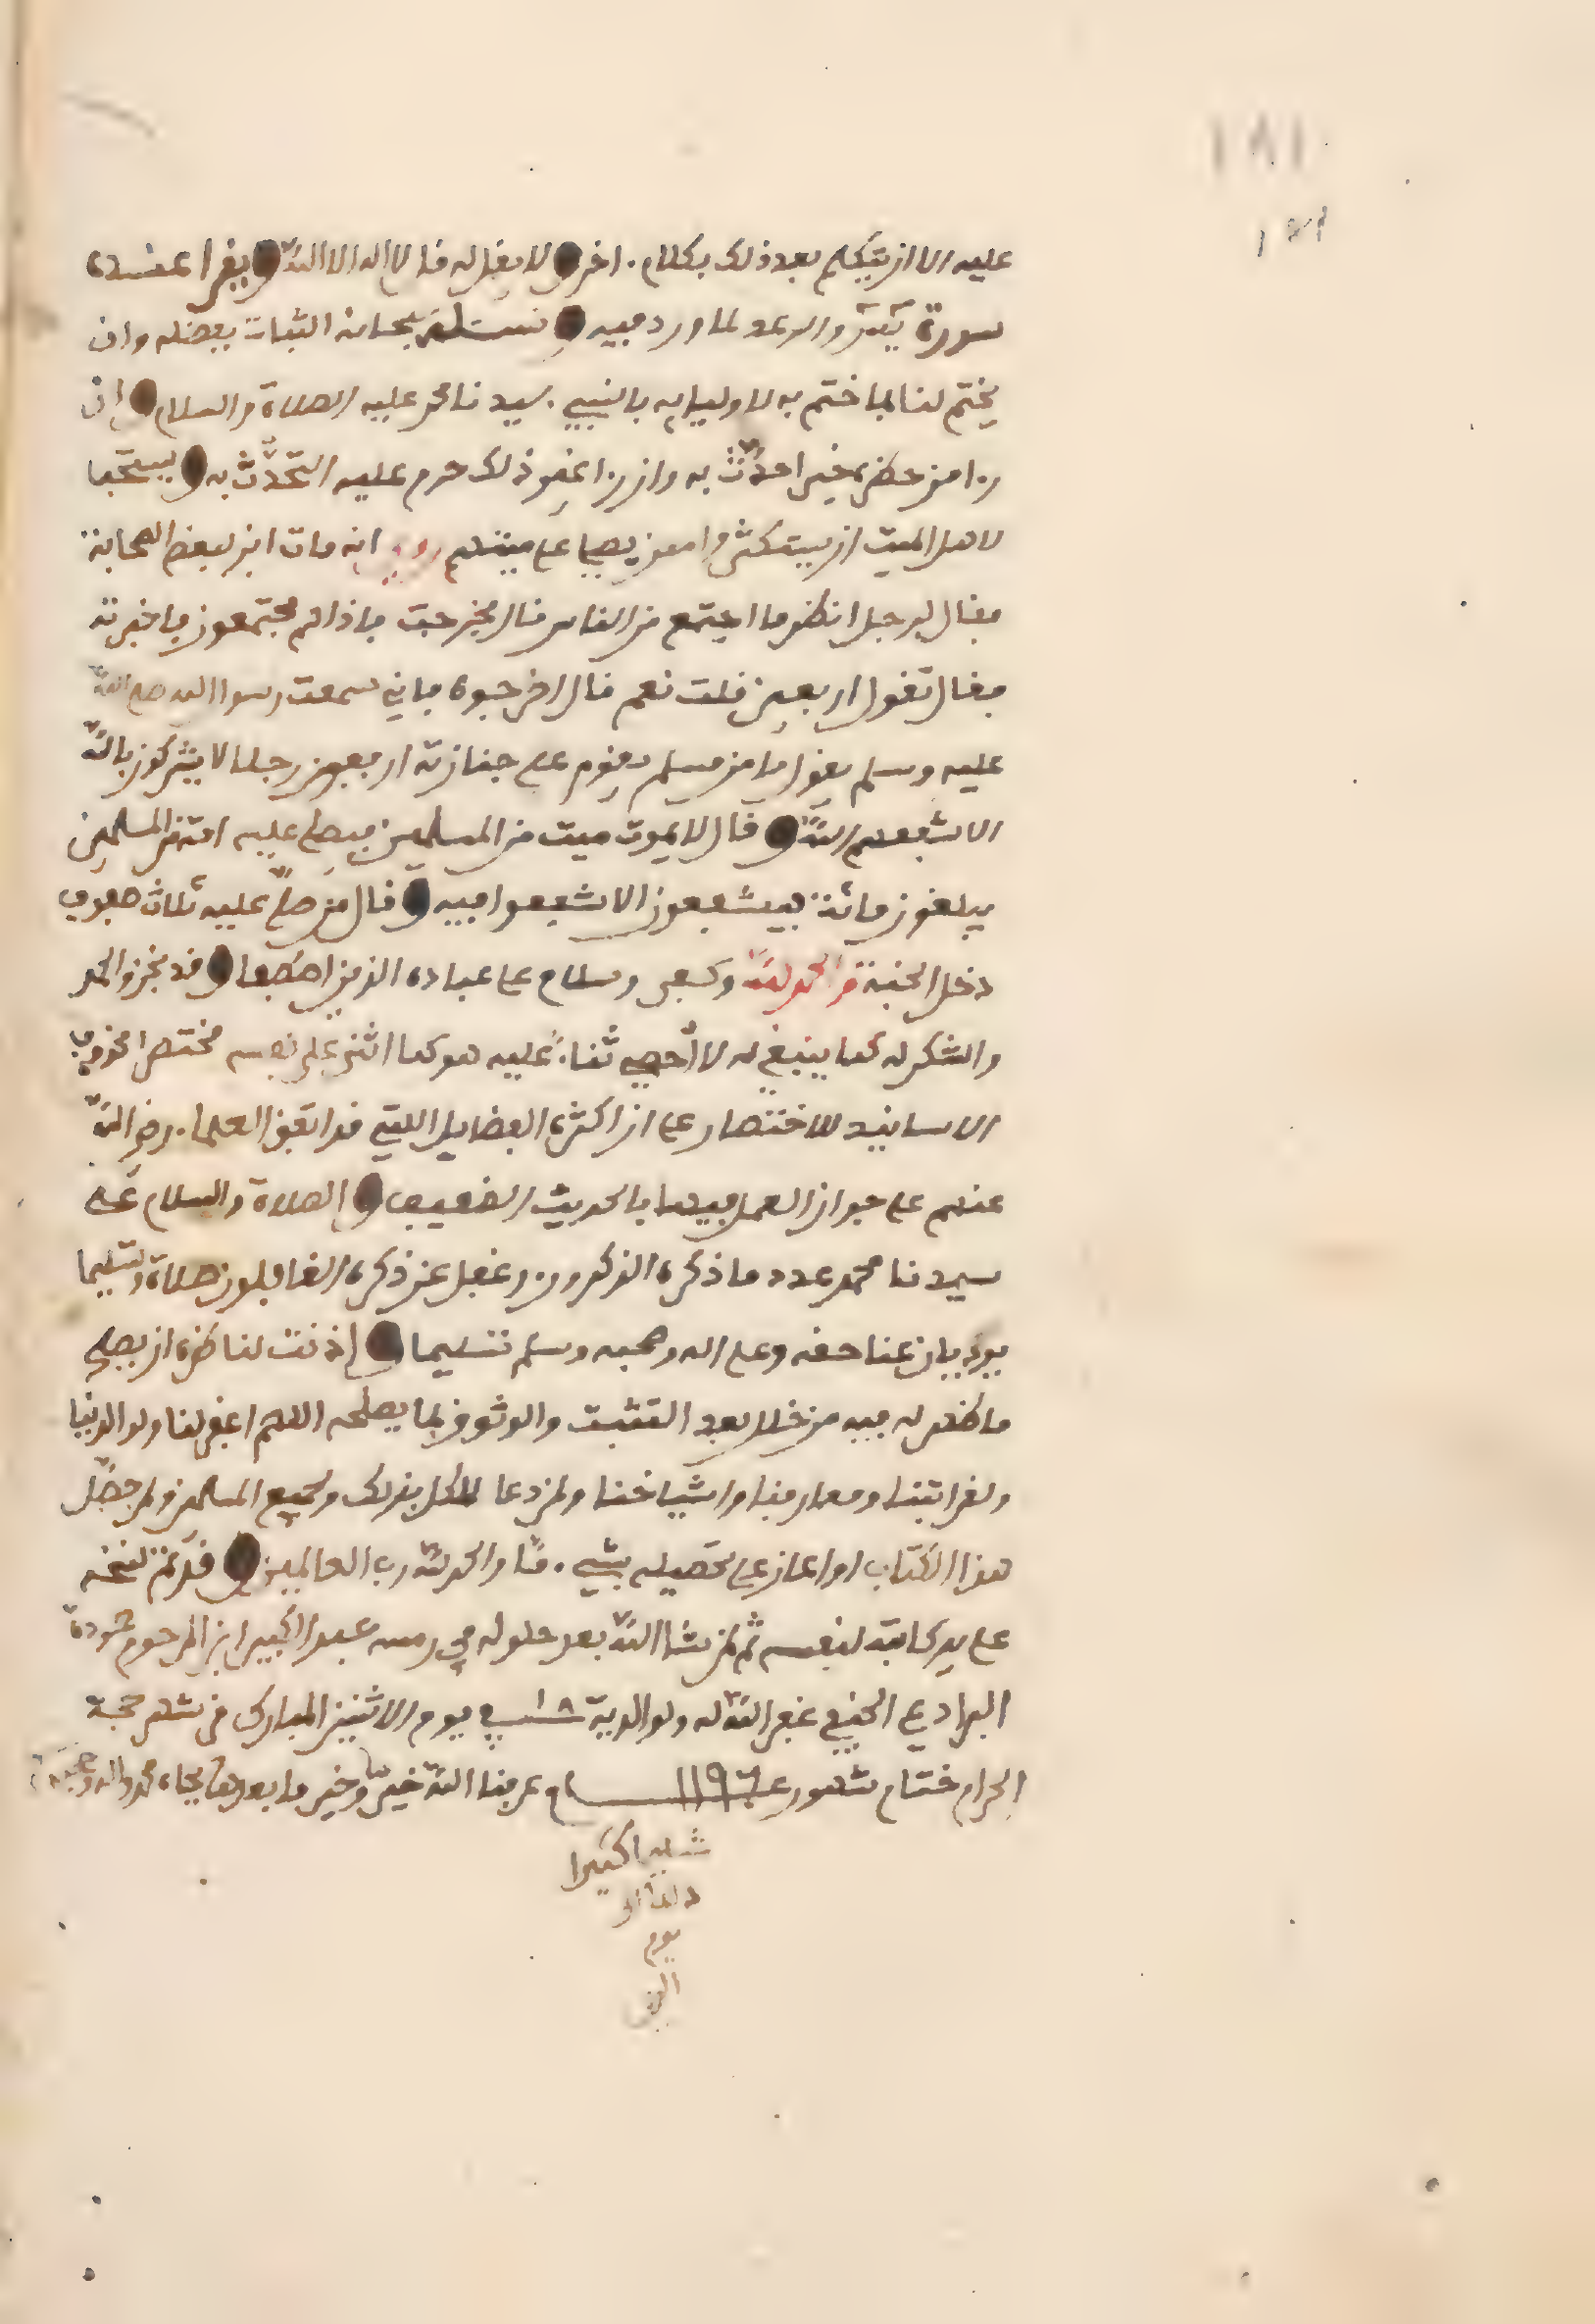 ١٨١
١٨١
عليه الا ان يتكلم بعد ذلك بكلام اخر ولا يقل له قل لا اله الا الله ويقرا عنده
سورة يس والرعد لما ورد فيه ونسئله سبحانه الثبات بفضله وان
يختم لنا بما ختم به لاوليايه بالنبي سيدنا محمد عليه الصلاة والسلام وان
را من حضر خيرا حدث به وان را غير ذلك حرم عليه التحدث به ويستحب
لاهل الميت ان يستكثروا من يصلي على ميتهم روي انه مات ابن لبعض الصحابة
فقال لرجل انظر ما اجتمع من الناس قال فخرجت فاذا هم مجتمعون فاخبرته
فقال تقول اربعين قلت نعم قال اخرجوه فاني سمعت رسول الله صلى الله
عليه وسلم يقول ما من مسلم يقوم على جنازته اربعون رجلا لا يشركون بالله
الا شفعهم الله وقال لا يموت ميت من المسلمين فيصلي عليه امة من المسلمين
يبلغون مائة فيشفعون الا شفعوا فيه وقال من صلى عليه ثلاث صفوف
دخل الجنة والحمد لله وكفى وسلام على عباده الذين اصطفا وقد نجز والحمد
والشكر له كما ينبغي له لا أحصي ثناء عليه هو كما اثنى على نفسه مختصرا محذوف
الاسانيد للاختصار على ان اكثره الفضايل اللتي قد اتفق العلماء رضي الله
عنهم على جواز العمل فيها بالحديث الضعيف والصلاة والسلام على
سيدنا محمد عدد ما ذكره الذكرون وغفل عن ذكره الغافلون صلاة وتسليما
يوديان عنا حقه وعلى اله وصحبه وسلم تسليما واذنت لناظره ان يصلح
ما ظهر له فيه من خلل بعد التثبت والوثوق بما يصلحه اللهم اغفر لنا ولوالدينا
ولقرابتنا ومعارفنا واشياخنا ولمن دعا للكل بذلك ولجميع المسلمين ولمن حصل
هذا الكتاب او اعان على تحصيله بشيء منا والحمد لله رب العالمين وقد تم نسخه
على يد كاتبه لنفسه ثم لمن شاء الله بعد حلوله في رمسه عبد الكبير ابن المرحوم حمودة
البرادعي الحنفي غفر الله له ولوالديه ١٨ في يوم الاثنين المبارك من شهر حجة
الحرام ختام شهور عام ١١٩٦ عرفنا الله خيره وخير ما بعده بجاه محمد واله وصحبه
كثيرا
يوم